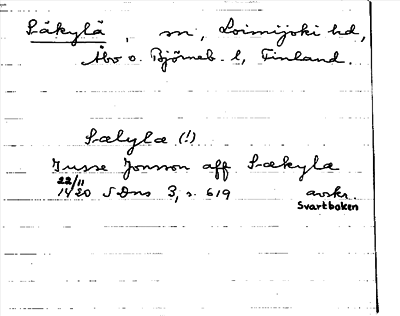 Säkylä, sn, Loimijoki hd,
Åbo o. Björneb. l, Finland.
Sælylæ (!)
Jusse Jonsson aff Sækylæ
22/11 1420 SDns 3, s. 619 avskr.
Svartboken